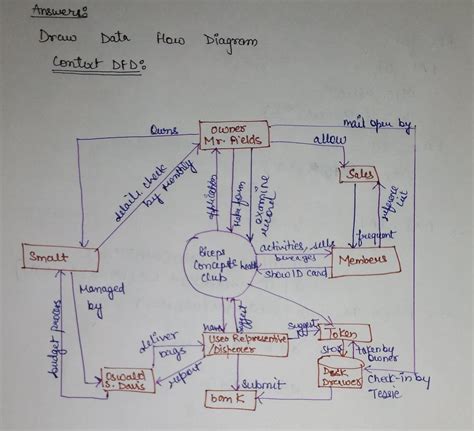 Answers:
Draw Data Flow Diagram
Context DFD:
Owns
Owner
Mr. Fields
mail open by
allow
Sales
details check
by monthly
application
data form
examine
record
reference
list
frequent
Smalt
Biceps
Concepts health
club
activities, sells
beverages
Show ID card
Members
Managed
by
budget process
deliver
bags
report
Oswald
S. Davis
User Representive
/Dispenser
suggest
Token
Store
token by
owner
Desk
Drawer
Check-in by
Tessie
Submit
bank